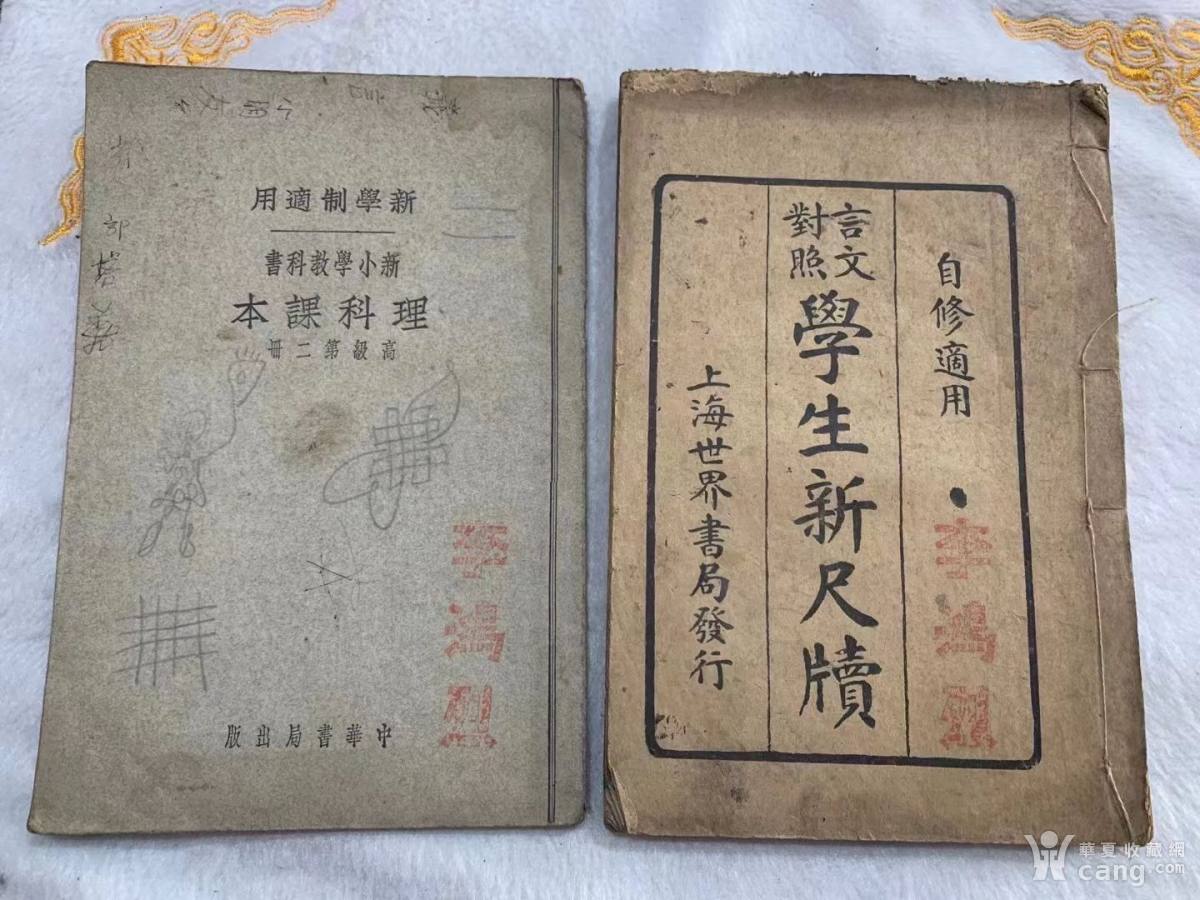 小朋友
新學制適用
新小學教科書
理科課本
高級第二冊
中華書局出版
李鴻烈
自修適用
言文對照
學生新尺牘
上海世界書局發行
李鴻烈
華夏收藏網
cang.com